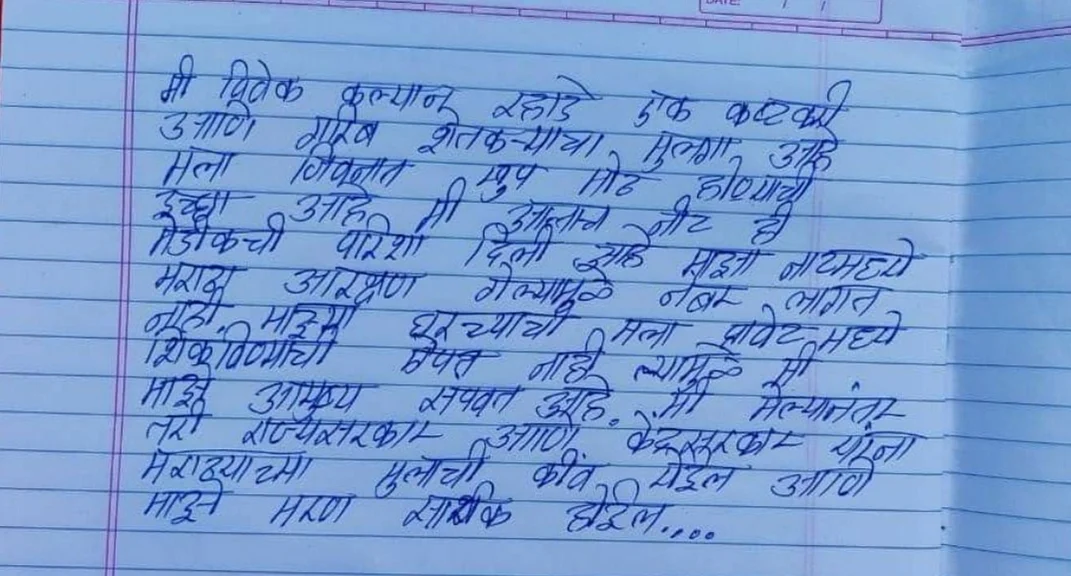 DATE: / /
मी विवेक कल्यान रहाडे एक कष्टकरी
आणि गरिब शेतकऱ्याचा मुलगा आहे
मला जिवनात खुप मोठ होण्याची
इच्छा आहे मी आत्ताच नीट ही
मेडीकची परिशा दिली आहे माझा नीटमध्ये
मराठा आरक्षण गेल्यामुळे नंबर लागत
नाही. माझ्या घरच्याची मला प्रावेट मध्ये
शिकविण्याची ऐपत नाही त्यामुळे मी
माझे आयुष्य संपवत आहे. मी मेल्यानंतर
तरी राज्यसरकार आणि केंद्रसरकार यांना
मराठ्याच्या मुलाची कीव येईल आणि
माझे मरण सार्थक होईल....